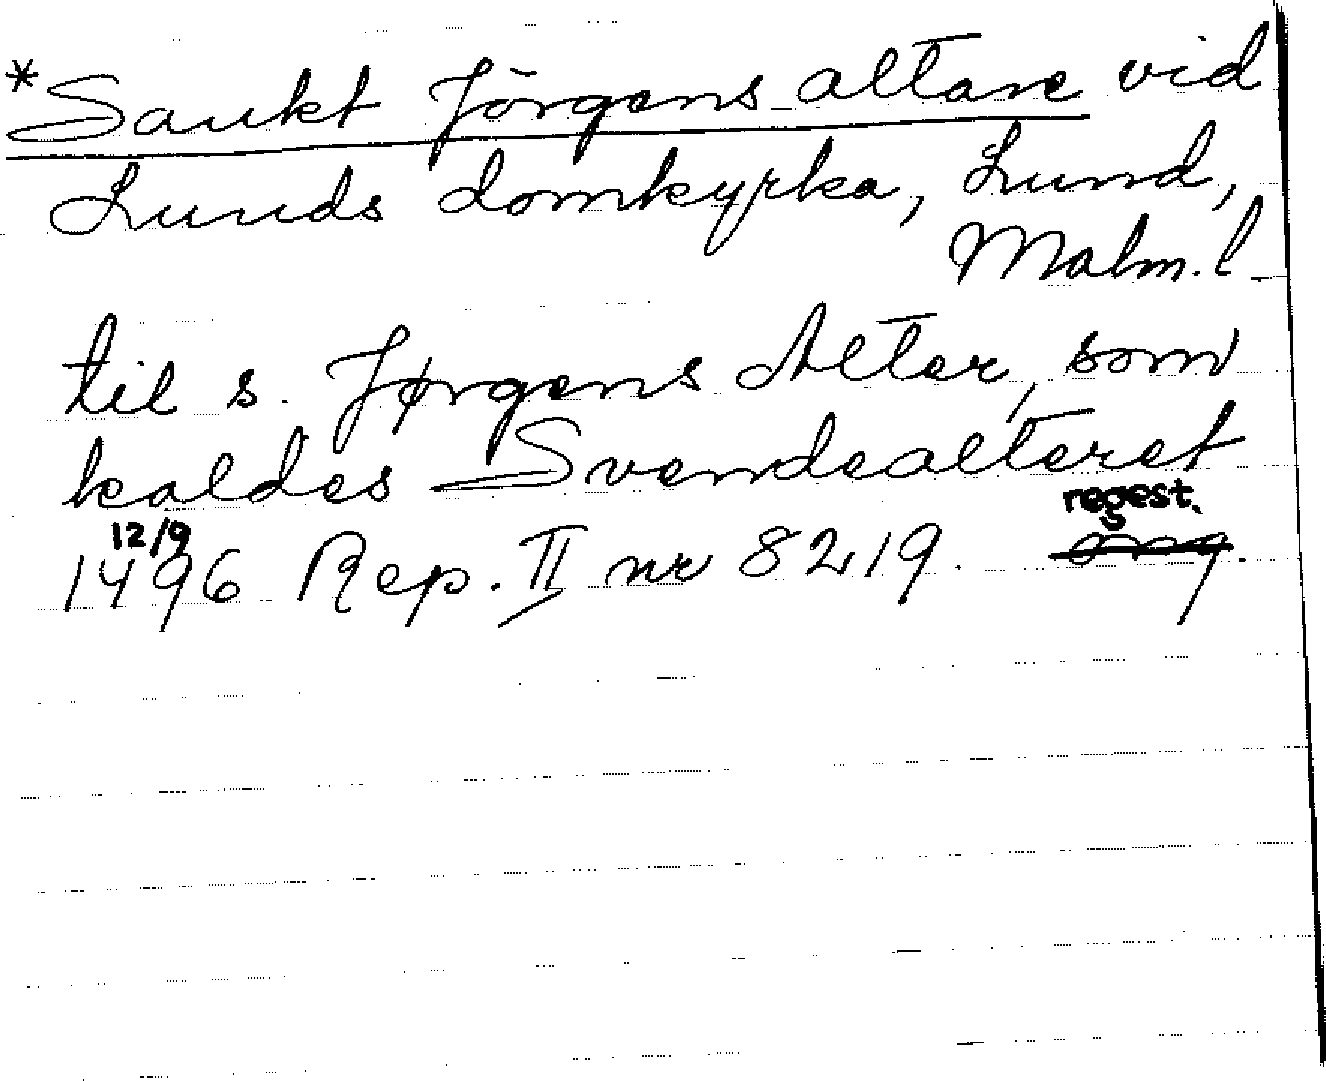 *Sankt Jörgens altare vid
Lunds domkyrka, Lund,
Malm. l.
til s. Jørgens Alter, som
kaldes Svendealteret
12/9 regest.
1496 Rep. II nr 8219.